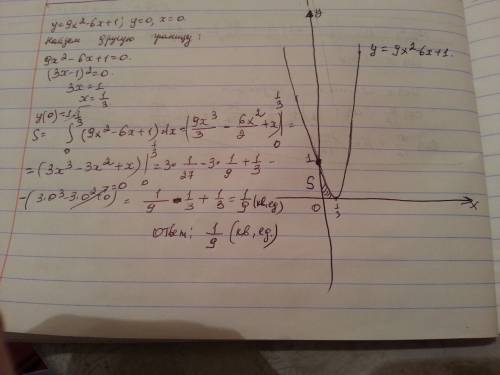 y=9x²-6x+1; y=0, x=0.
Найдем другую границу:
9x²-6x+1=0.
(3x-1)²=0.
3x=1
x=1/3
y(0)=1
S= ∫₀^(1/3) (9x²-6x+1)dx = (9x³/3 - 6x²/2 + x)|₀^(1/3) =
=(3x³-3x²+x)|₀^(1/3) = 3·1/27 - 3·1/9 + 1/3 -
-(3·0³-3·0²+0)= 1/9 - 1/3 + 1/3 = 1/9 (кв.ед)
Ответ: 1/9 (кв.ед.)
y
y=9x²-6x+1.
1
S
0
1/3
x